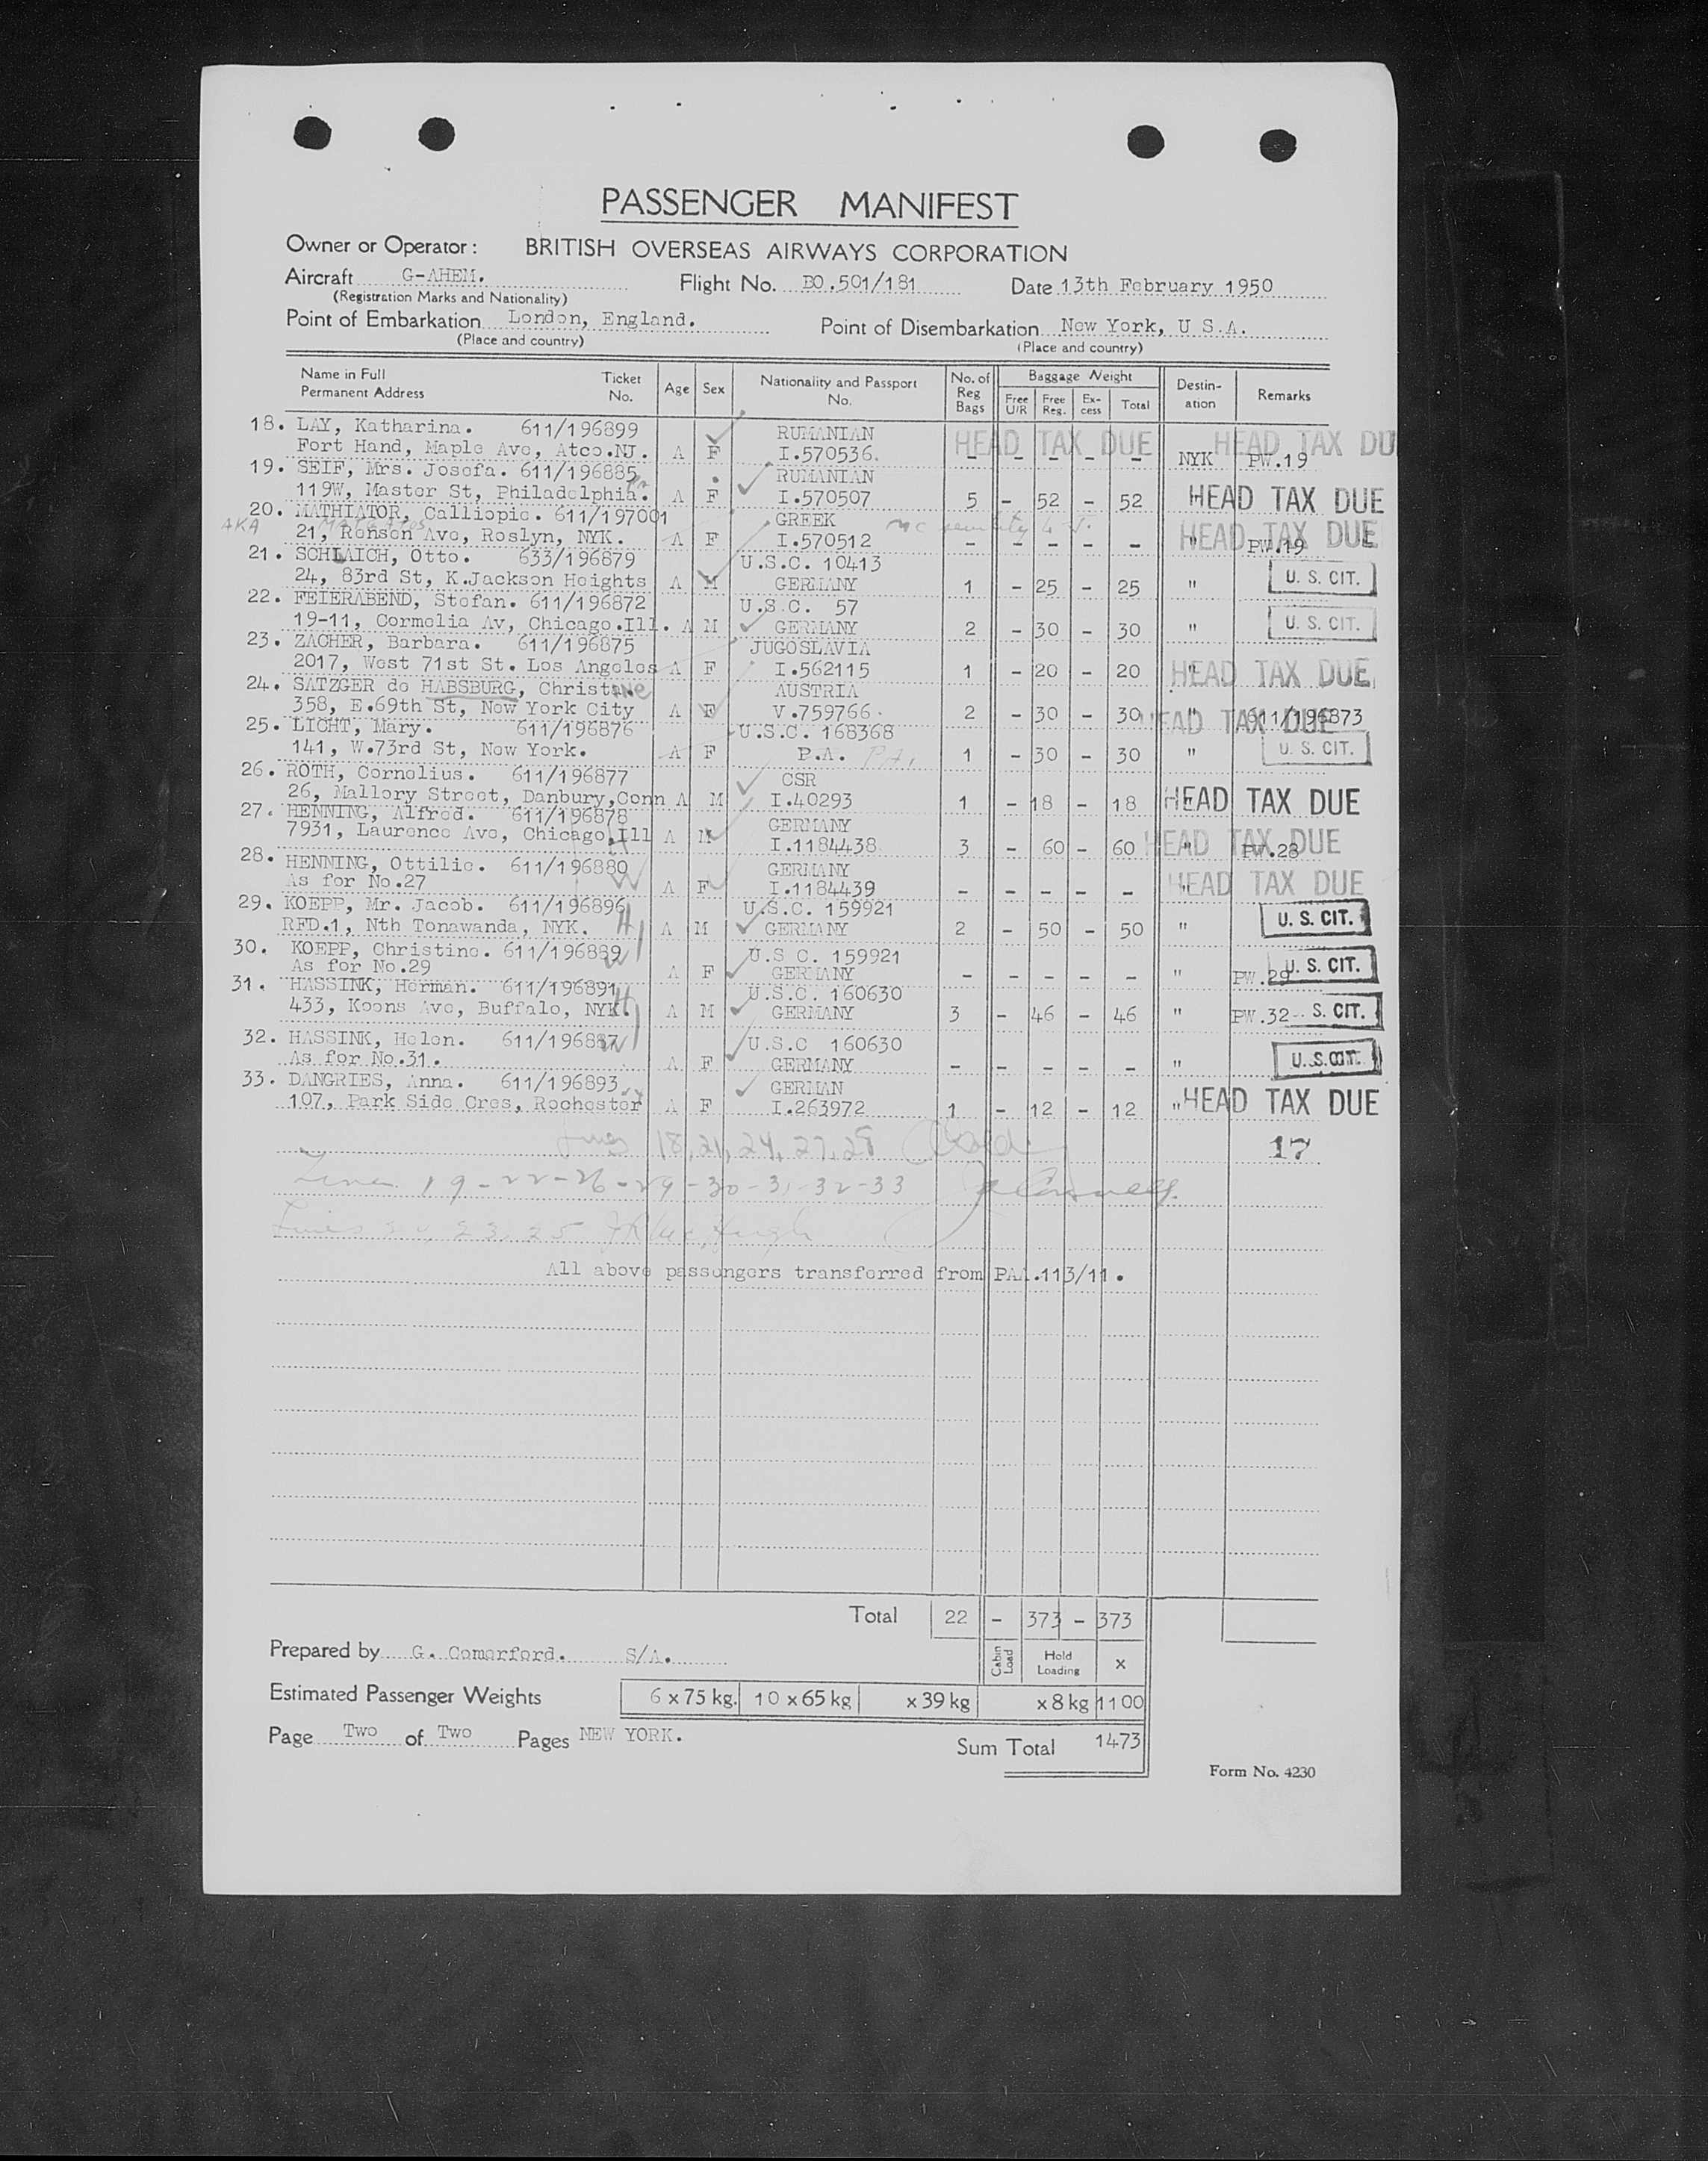 PASSENGER MANIFEST
Owner or Operator: BRITISH OVERSEAS AIRWAYS CORPORATION
Aircraft G-AHEM. Flight No. BO.501/181 Date 13th February 1950
(Registration Marks and Nationality)
Point of Embarkation London, England. Point of Disembarkation New York, U.S.A.
(Place and country) (Place and country)
Name in Full Permanent Address Ticket No. Age Sex Nationality and Passport No. No. of Reg Bags Baggage Weight Free U/R Free Reg. Ex-cess Total Destin-ation Remarks
18. LAY, Katharina. 611/196899 RUMANIAN HEAD TAX DUE HEAD TAX DU
Fort Hand, Maple Ave, Atco.NJ. A F I.570536. - - - - - NYK PW.19
19. SEIF, Mrs. Josefa. 611/196885 RUMANIAN
119W, Master St, Philadelphia. A F I.570507 5 - 52 - 52 HEAD TAX DUE
20. MATHIATOR, Calliopie. 611/197001 GREEK
AKA
21, Ronson Ave, Roslyn, NYK. A F I.570512 - - - - - " PW.19 HEAD TAX DUE
21. SCHLAICH, Otto. 633/196879 U.S.C. 10413
24, 83rd St, K.Jackson Heights A M GERMANY 1 - 25 - 25 " U. S. CIT.
22. FEIERABEND, Stefan. 611/196872 U.S.C. 57
19-11, Cormelia Av, Chicago.Ill. A M GERMANY 2 - 30 - 30 " U. S. CIT.
23. ZACHER, Barbara. 611/196875 JUGOSLAVIA
2017, West 71st St. Los Angeles A F I.562115 1 - 20 - 20 " HEAD TAX DUE
24. SATZGER de HABSBURG, Christane AUSTRIA
358, E.69th St, New York City A F V.759766. 2 - 30 - 30 " 611/196873 HEAD TAX DUE
25. LICHT, Mary. 611/196876 U.S.C. 168368
141, W.73rd St, New York. A F P.A. P.A. 1 - 30 - 30 " U. S. CIT.
26. ROTH, Cornelius. 611/196877 CSR
26, Mallory Street, Danbury,Conn A M I.40293 1 - 18 - 18 " HEAD TAX DUE
27. HENNING, Alfred. 611/196878 GERMANY
7931, Laurence Ave, Chicago.Ill A M I.1184438 3 - 60 - 60 " PW.28 HEAD TAX DUE
28. HENNING, Ottilie. 611/196880 GERMANY
As for No.27 W A F I.1184439 - - - - - " HEAD TAX DUE
29. KOEPP, Mr. Jacob. 611/196896 U.S.C. 159921
RFD.1, Nth Tonawanda, NYK. H A M GERMANY 2 - 50 - 50 " U. S. CIT.
30. KOEPP, Christine. 611/196889 U.S C. 159921
As for No.29 W A F GERMANY - - - - - " PW.29 U. S. CIT.
31. HASSINK, Herman. 611/196891 U.S.C. 160630
433, Koons Ave, Buffalo, NYK. H A M GERMANY 3 - 46 - 46 " PW.32 S. CIT.
32. HASSINK, Helen. 611/196887 W U.S.C 160630
As for No.31. A F GERMANY - - - - - " U.S.CIT.
33. DANGRIES, Anna. 611/196893 GERMAN
107, Park Side Cres, Rochester A F I.263972 1 - 12 - 12 " HEAD TAX DUE
Lines 18, 21, 24, 27, 28 17
Lines 19-22-26-29-30-31-32-33
Lines 20, 23, 25
All above passengers transferred from PAA.113/11.
Total 22 - 373 - 373
Prepared by G. Comerford. S/A. Cabin Load Hold Loading x
Estimated Passenger Weights 6 x 75 kg. 10 x 65 kg x 39 kg x 8 kg 1100
Page Two of Two Pages NEW YORK. Sum Total 1473
Form No. 4230